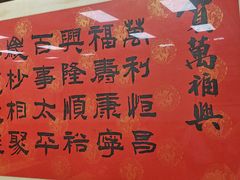 萬福興
榮利恒昌
福壽康寧
興隆順裕
百事太平
抄相聚